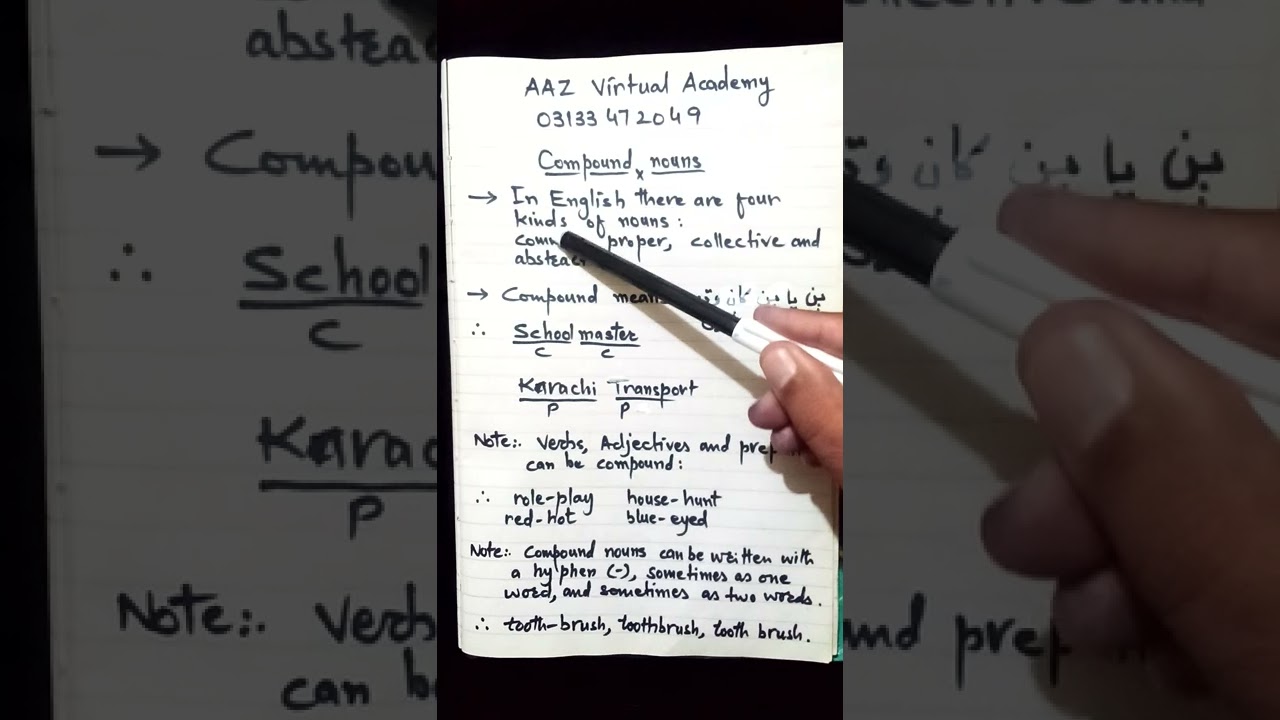 AAZ Virtual Academy
03133 472049
Compound nouns
x
→ In English there are four
kinds of nouns:
comm proper, collective and
abstrac
→ Compound means وق کان بن یا بن
∴ School master
C C
Karachi Transport
P P
Note:. Verbs, Adjectives and prep
can be compound:
∴ role-play house-hunt
red-hot blue-eyed
Note:. Compound nouns can be written with
a hyphen (-), sometimes as one
word, and sometimes as two words.
∴ tooth-brush, toothbrush, tooth brush.